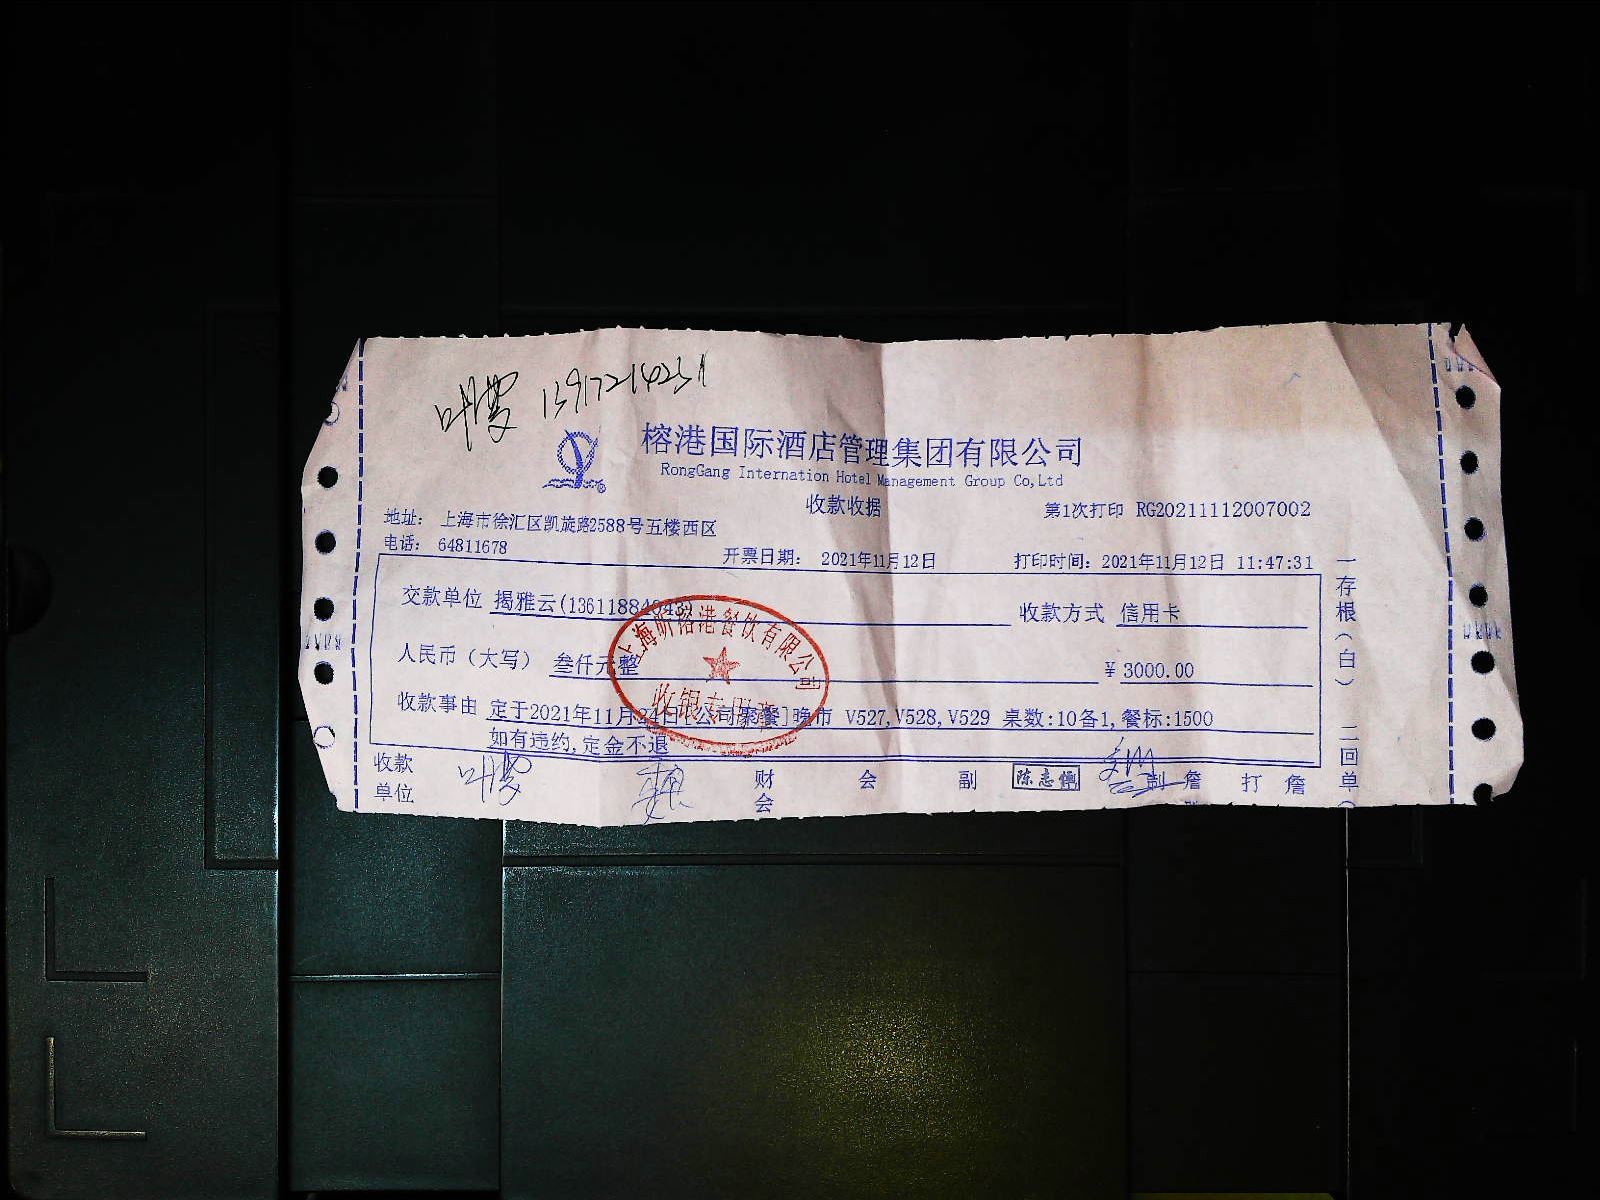 叶霞 13917214231
榕港国际酒店管理集团有限公司
RongGang Internation Hotel Management Group Co,Ltd
收款收据
第1次打印 RG20211112007002
地址: 上海市徐汇区凯旋路2588号五楼西区
电话: 64811678
开票日期: 2021年11月12日
打印时间: 2021年11月12日 11:47:31
交款单位 揭雅云(13611884043)
收款方式 信用卡
人民币(大写) 叁仟元整
¥ 3000.00
收款事由 定于2021年11月24日[公司聚餐]晚市 V527,V528,V529 桌数:10备1,餐标:1500
如有违约,定金不退
上海昕榕港餐饮有限公司
收银专用章
收款单位
叶霞
财会
会
副
制
詹
打
詹
一存根(白)
二回单(